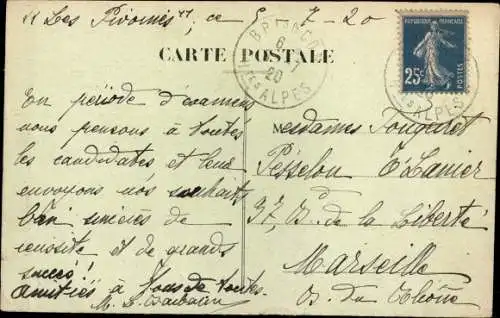 "Les Pivoines", ce 5 7-20
CARTE POSTALE
BRIANÇON
6
20
HTES ALPES
RÉPUBLIQUE FRANÇAISE
25c
POSTES
ALPES
En période d'examens
nous pensons à toutes
les candidates et leur
envoyons nos souhaits
bien sincères de
réussite et de grands
succès!
Amitiés à Vous de toutes.
M. L.
Mesdames Fougeret
37, B. de la Liberté
Marseille
B. du Rhône